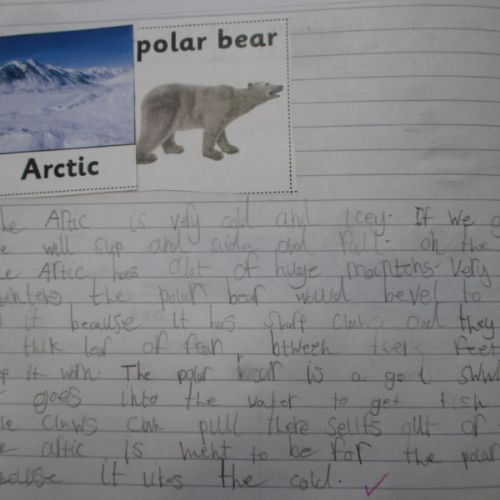 polar bear
Arctic
Artic is very cold and icey. If we
will slip and slide and fall. on the
Artic has alot of huge mountens. very
the polar bear would bevel to
it because it has sharp claws and they
thik lear of fear btween there feet
it worm. The polar bear is a god
goes into the water to get fish
claws can pull there selfs out of
artic is ment to be for the polar
it likes the cold.